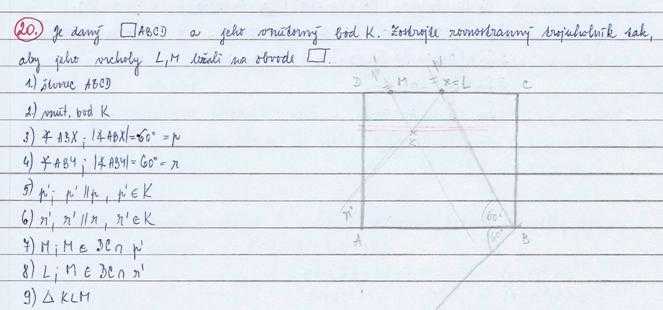 20. Je daný □ABCD a jeho vnútorný bod K. Zostrojte rovnostranný trojuholník tak,
aby jeho vrcholy L, M ležali na obvode □.
1) štvorec ABCD
2) vnút. bod K
3) ∢ABX; |∢ABX|=60° = p
4) ∢ABY; |∢ABY|=60° = r
5) p'; p' // p, p' ∈ K
6) r', r' // r, r' ∈ K
7) M; M ∈ DC ∩ p'
8) L; M ∈ DC ∩ r'
9) △ KLM
D p' M p' x=L C
K
r'
60°
60°
A B